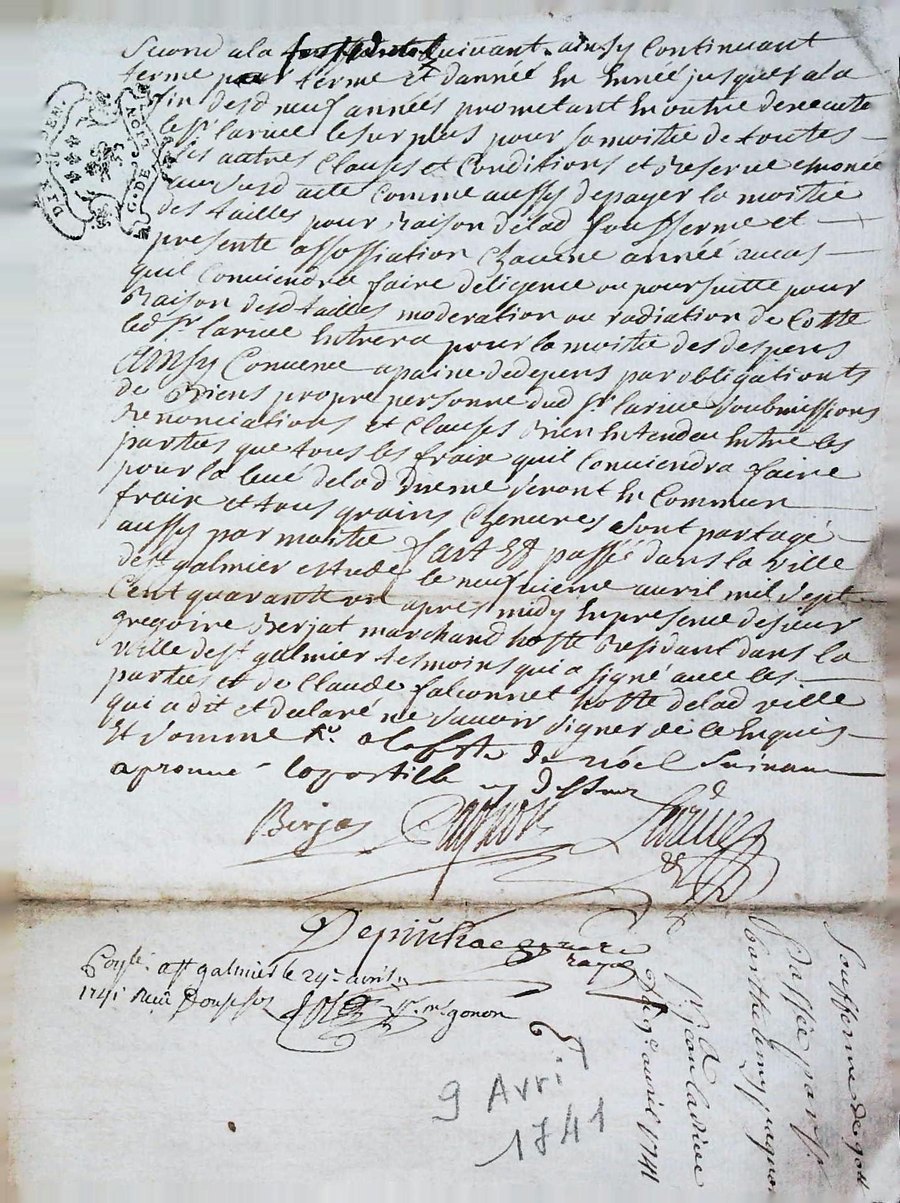 second a la suivant ainsy continuant
terme par terme et dannée en année jusques a la
fin desd neuf années prometant en outre dexecuter
le sr larue le surplus pour sa moitie de toutes
les autres clauses et conditions et reserve enoncé
au susd acte comme aussy de payer la moitie
des tailles pour raison de lad sousferme et
presente assossiation chacune année au cas
quil conviendra faire deligence ou poursuitte pour
raison desd tailles moderation ou radiation de cotte
led sr larue entrera pour la moitie des despens
ainsy convenu a paine de depens par obligations
de biens propre personne dud sr larue soubmissions
renonciations et clauses bien entendeu entre les
parties que tous les frais quil conviendra faire
pour la levé de lad dixme seront en commun
frais et tous grains seront partagé
aussy par moitie fait et passé dans la ville
de st galmier estude le neufvieme avril mil sept
cent quarante un apres midy en presence de sieur
gregoire Berjat marchand hoste residant dans la
ville de st galmier tesmoins qui a signé avec les
parties et de claude falconnet hoste de lad ville
qui a dit et declaré ne savoir signer de ce enquis
et sommé a la feste de noel suivant
aprouvé lapostille
Berjat Pagnon Larue
Conlé a st galmier le 24e avril
1741 Reçu Douze sols
gonon
9 Avril
1741
Soufferme de
Passée par sr
barthelemy pagnon
A
sr jean larue
Du 9e avril 1741
DIX DEN.
G. DE